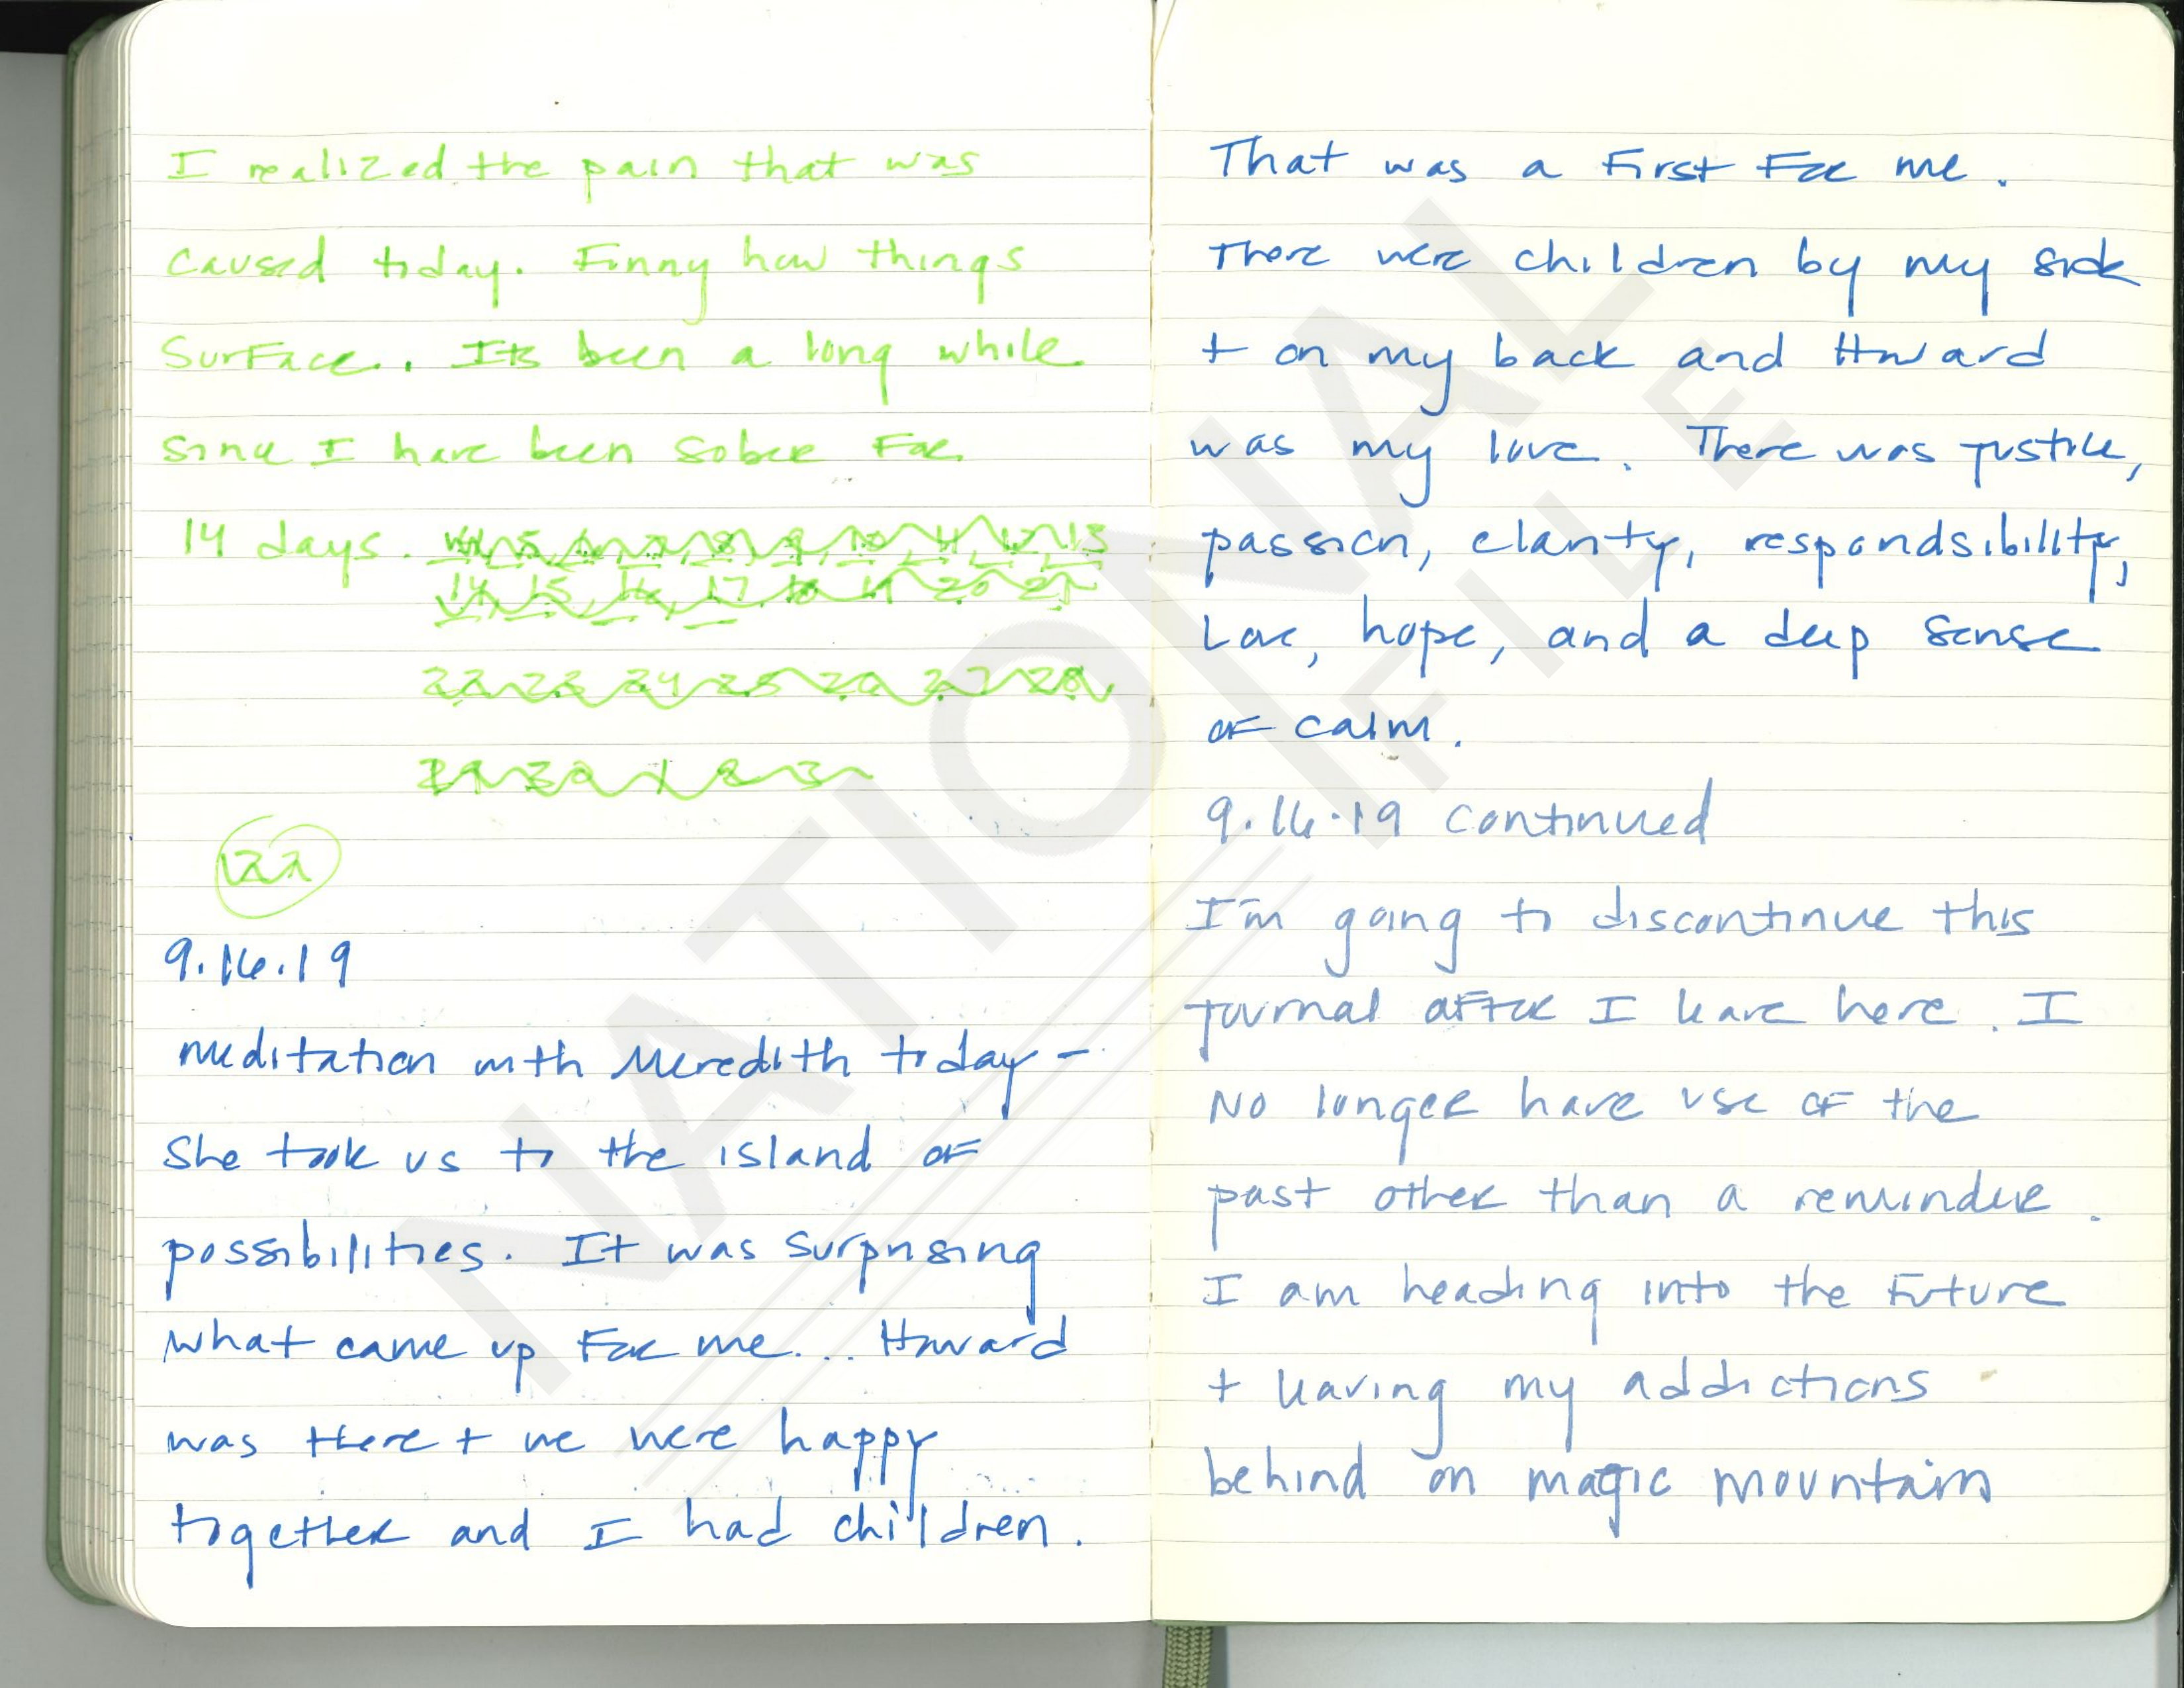 I realized the pain that was
caused today. Finny how things
surface.. Its been a long while
since I have been sober for
14 days. 5 6 7 8 9 10 11 12 13
14 15 16 17 18 19 20 21
22 23 24 25 26 27 28
29 30 1 2 3
9.16.19
meditation with Meredith today -
She took us to the island of
possibilities. It was surprising
what came up for me... Howard
was there + we were happy
together and I had children.
That was a first for me.
There were children by my side
+ on my back and Howard
was my love. There was justice,
passion, clarity, respondsibility,
Love, hope, and a deep sense
of calm.
9.16.19 continued
I'm going to discontinue this
journal after I leave here. I
No longer have use of the
past other than a reminder.
I am heading into the future
+ leaving my addictions
behind on magic mountain
NATIONAL
FILE